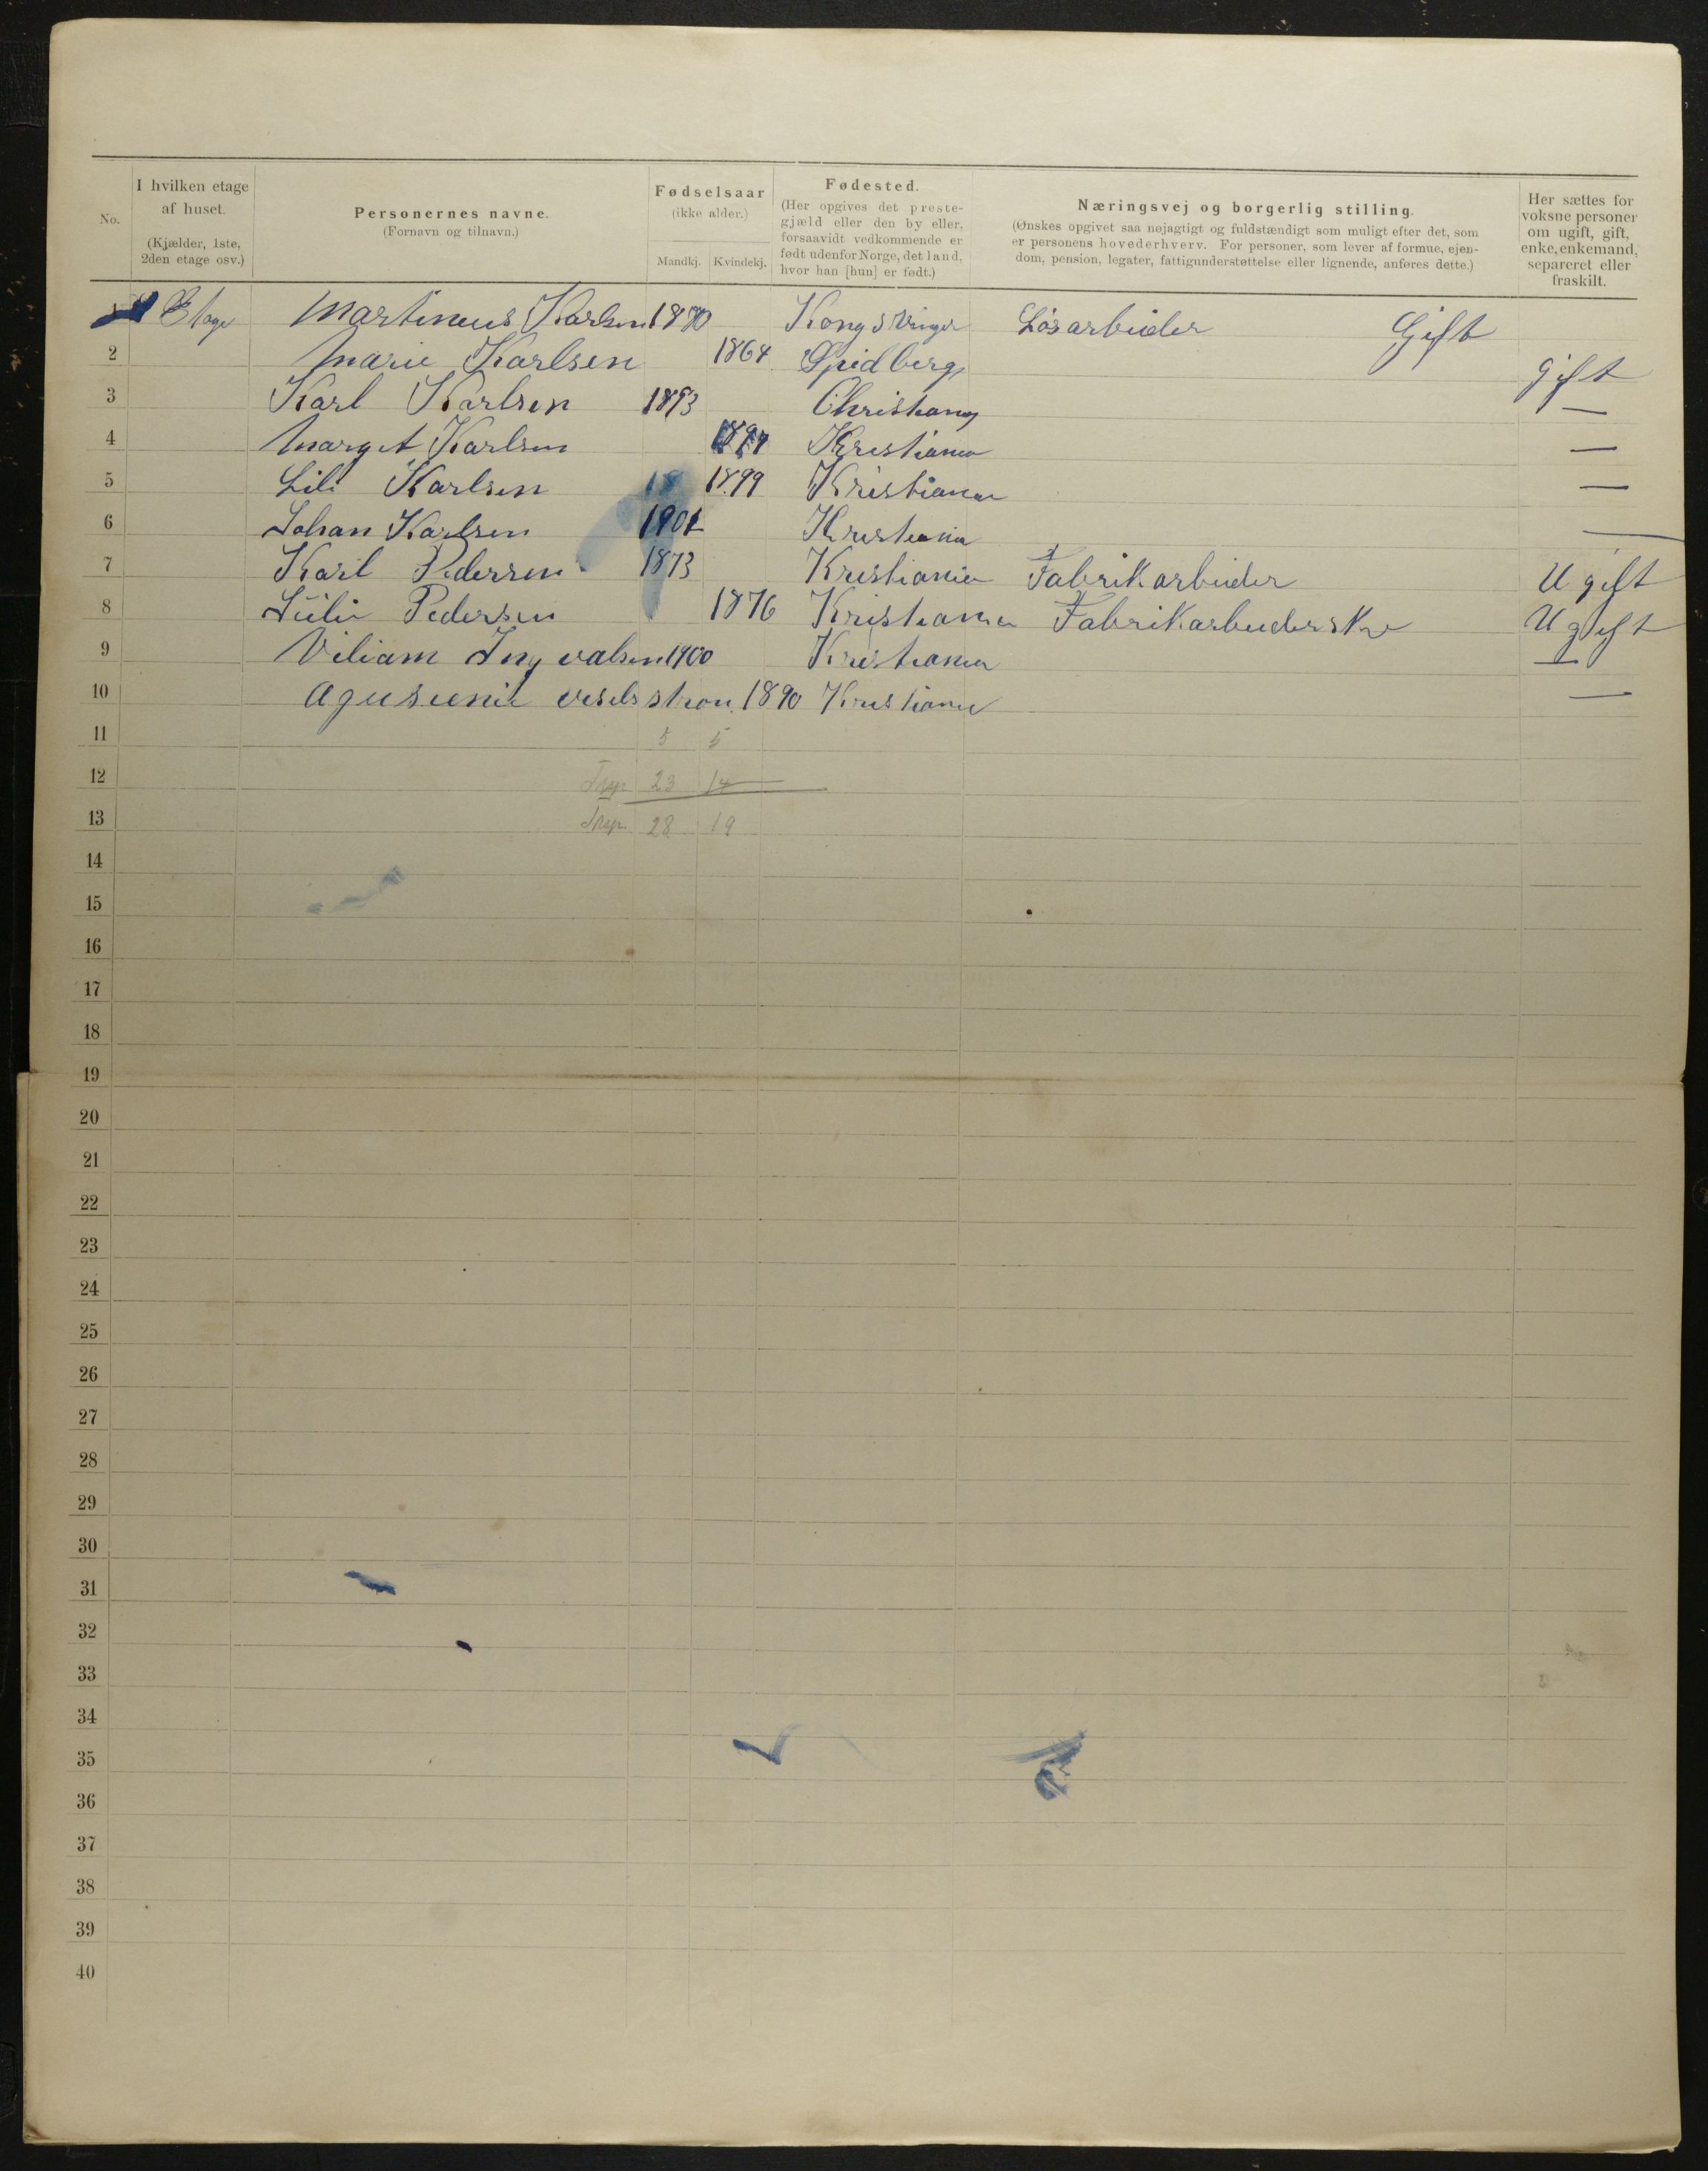 No.
I hvilken etage af huset. (Kjælder, 1ste, 2den etage osv.)
Personernes navne. (Fornavn og tilnavn.)
Fødselsaar (ikke alder.) Mandkj. Kvindekj.
Fødested. (Her opgives det prestegjæld eller den by eller, forsaavidt vedkommende er født udenfor Norge, det land, hvor han [hun] er født.)
Næringsvej og borgerlig stilling. (Ønskes opgivet saa nøjagtigt og fuldstændigt som muligt efter det, som er personens hovederhverv. For personer, som lever af formue, ejendom, pension, legater, fattigunderstøttelse eller lignende, anføres dette.)
Her sættes for voksne personer om ugift, gift, enke, enkemand, separeret eller fraskilt.
Etage Martineus Karlsen Kongsvinger Løsarbeider Gift
2 Marie Karlsen 1864 Spidberg Gift
3 Karl Karlsen 1893 Christiania —
4 Marget Karlsen Kristiania —
5 Lili Karlsen 18 1899 Kristiania —
6 Johan Karlsen 1901 Kristiania —
7 Karl Pedersen 1873 Kristiania Fabrikarbeider Ugift
8 Lüli Pedersen 1876 Kristiania Fabrikarbeiderske Ugift
9 Viliam Ingvalsen 1900 Kristiania —
10 1890 Kristiania —
11 5 5
12 23 14
13 28 19
14
15
16
17
18
19
20
21
22
23
24
25
26
27
28
29
30
31
32
33
34
35
36
37
38
39
40